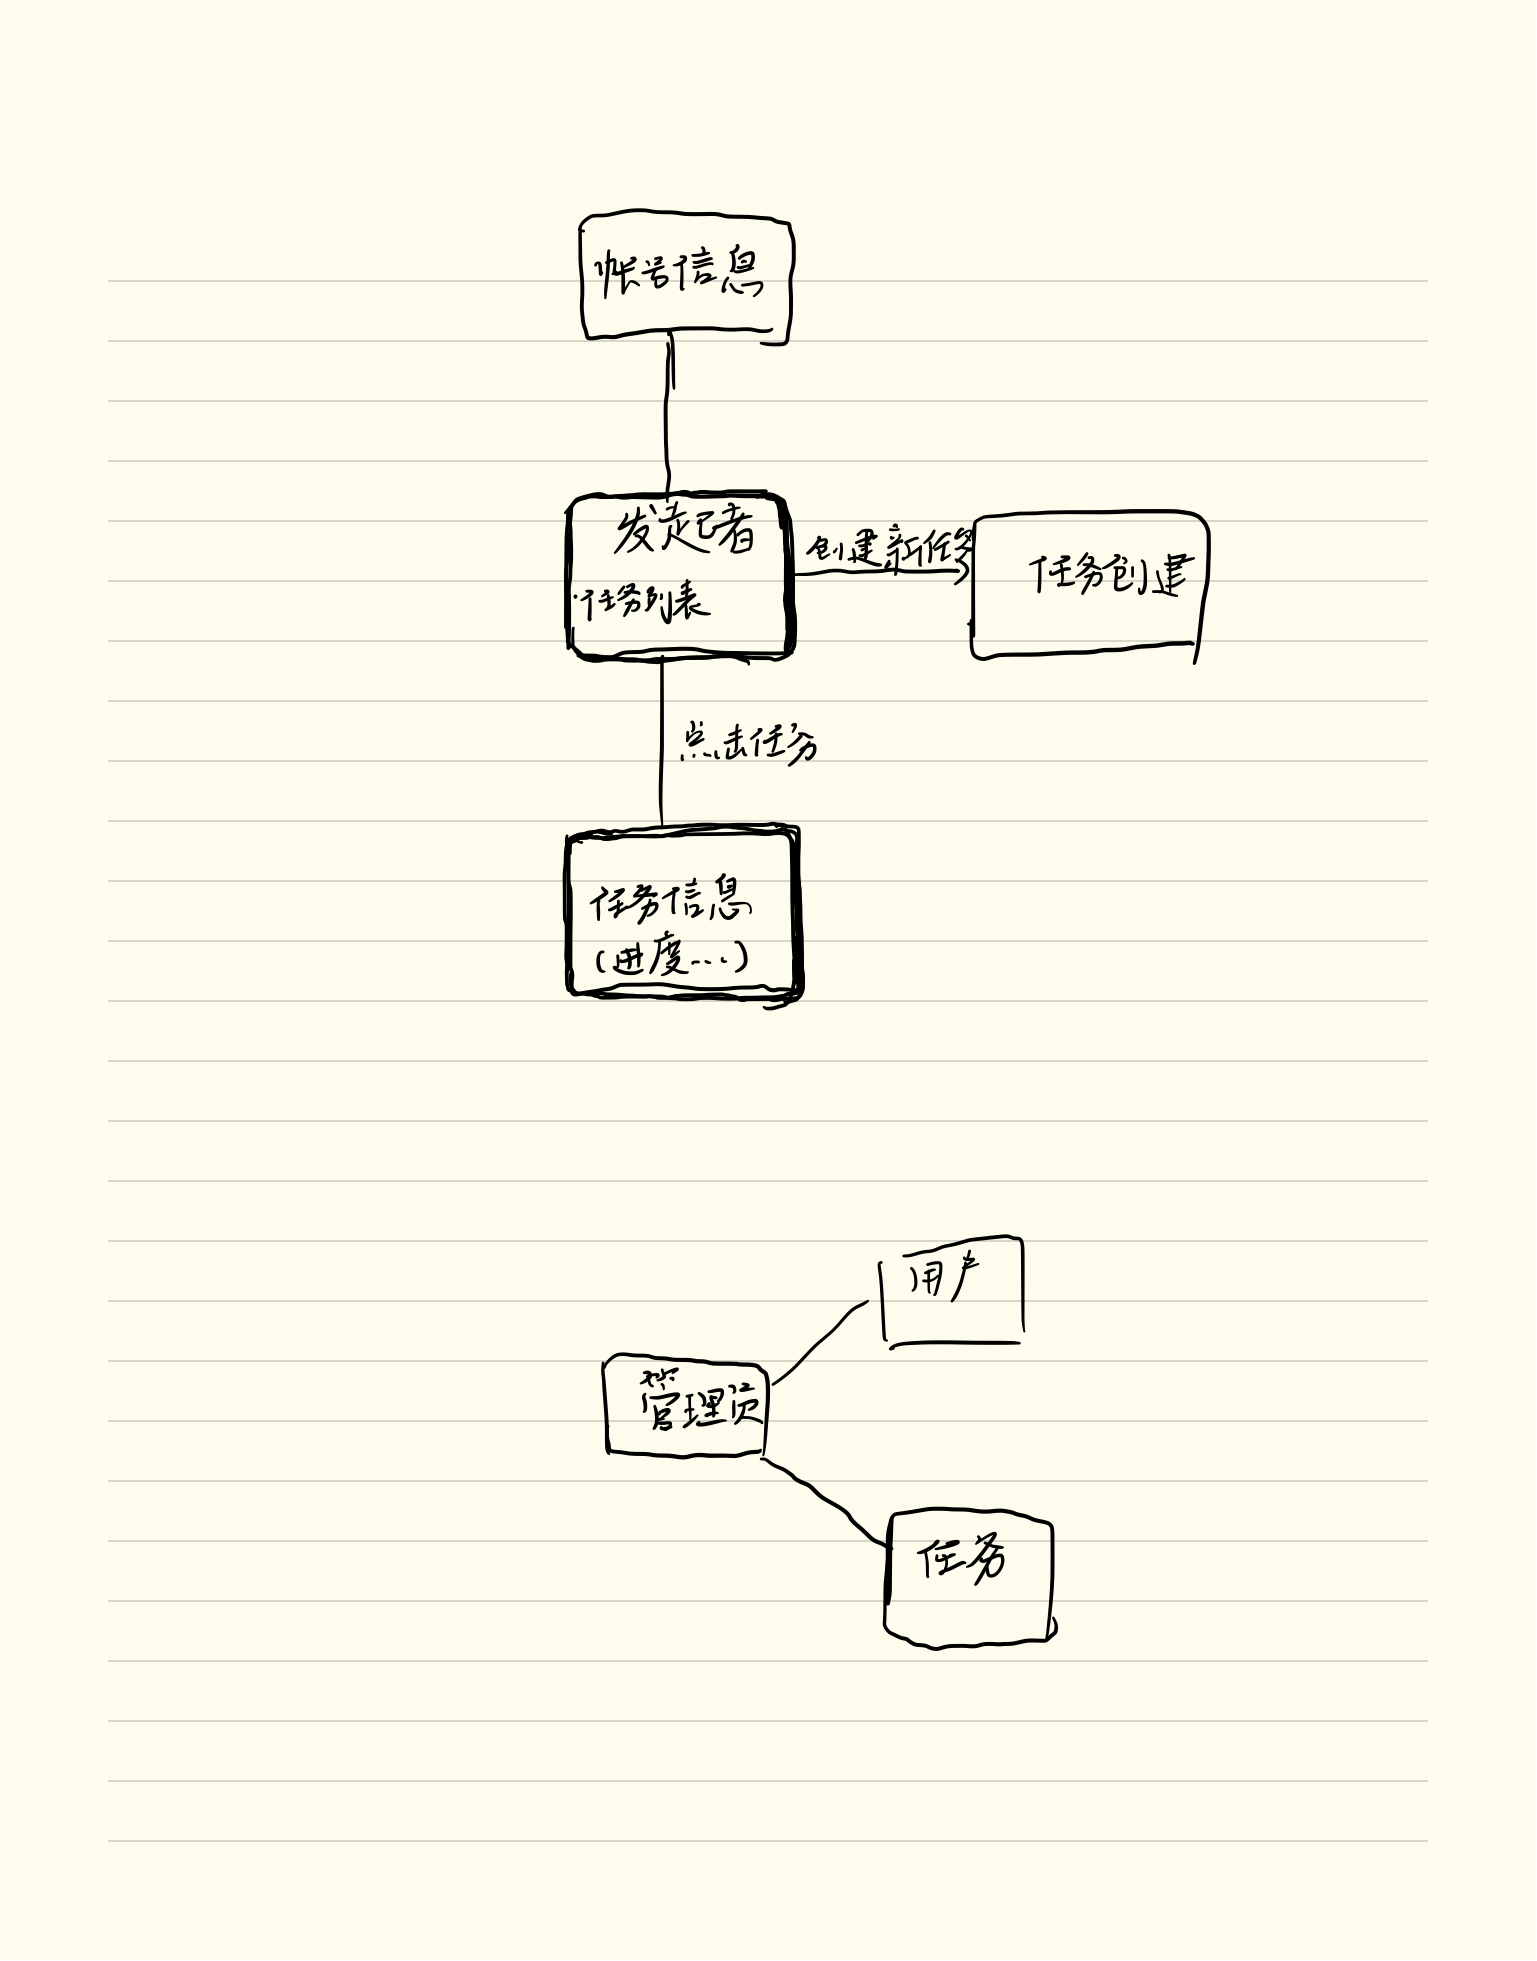 帐号信息
发起者
·任务列表
创建新任务
任务创建
点击任务
任务信息
(进度...)
用户
管理员
任务